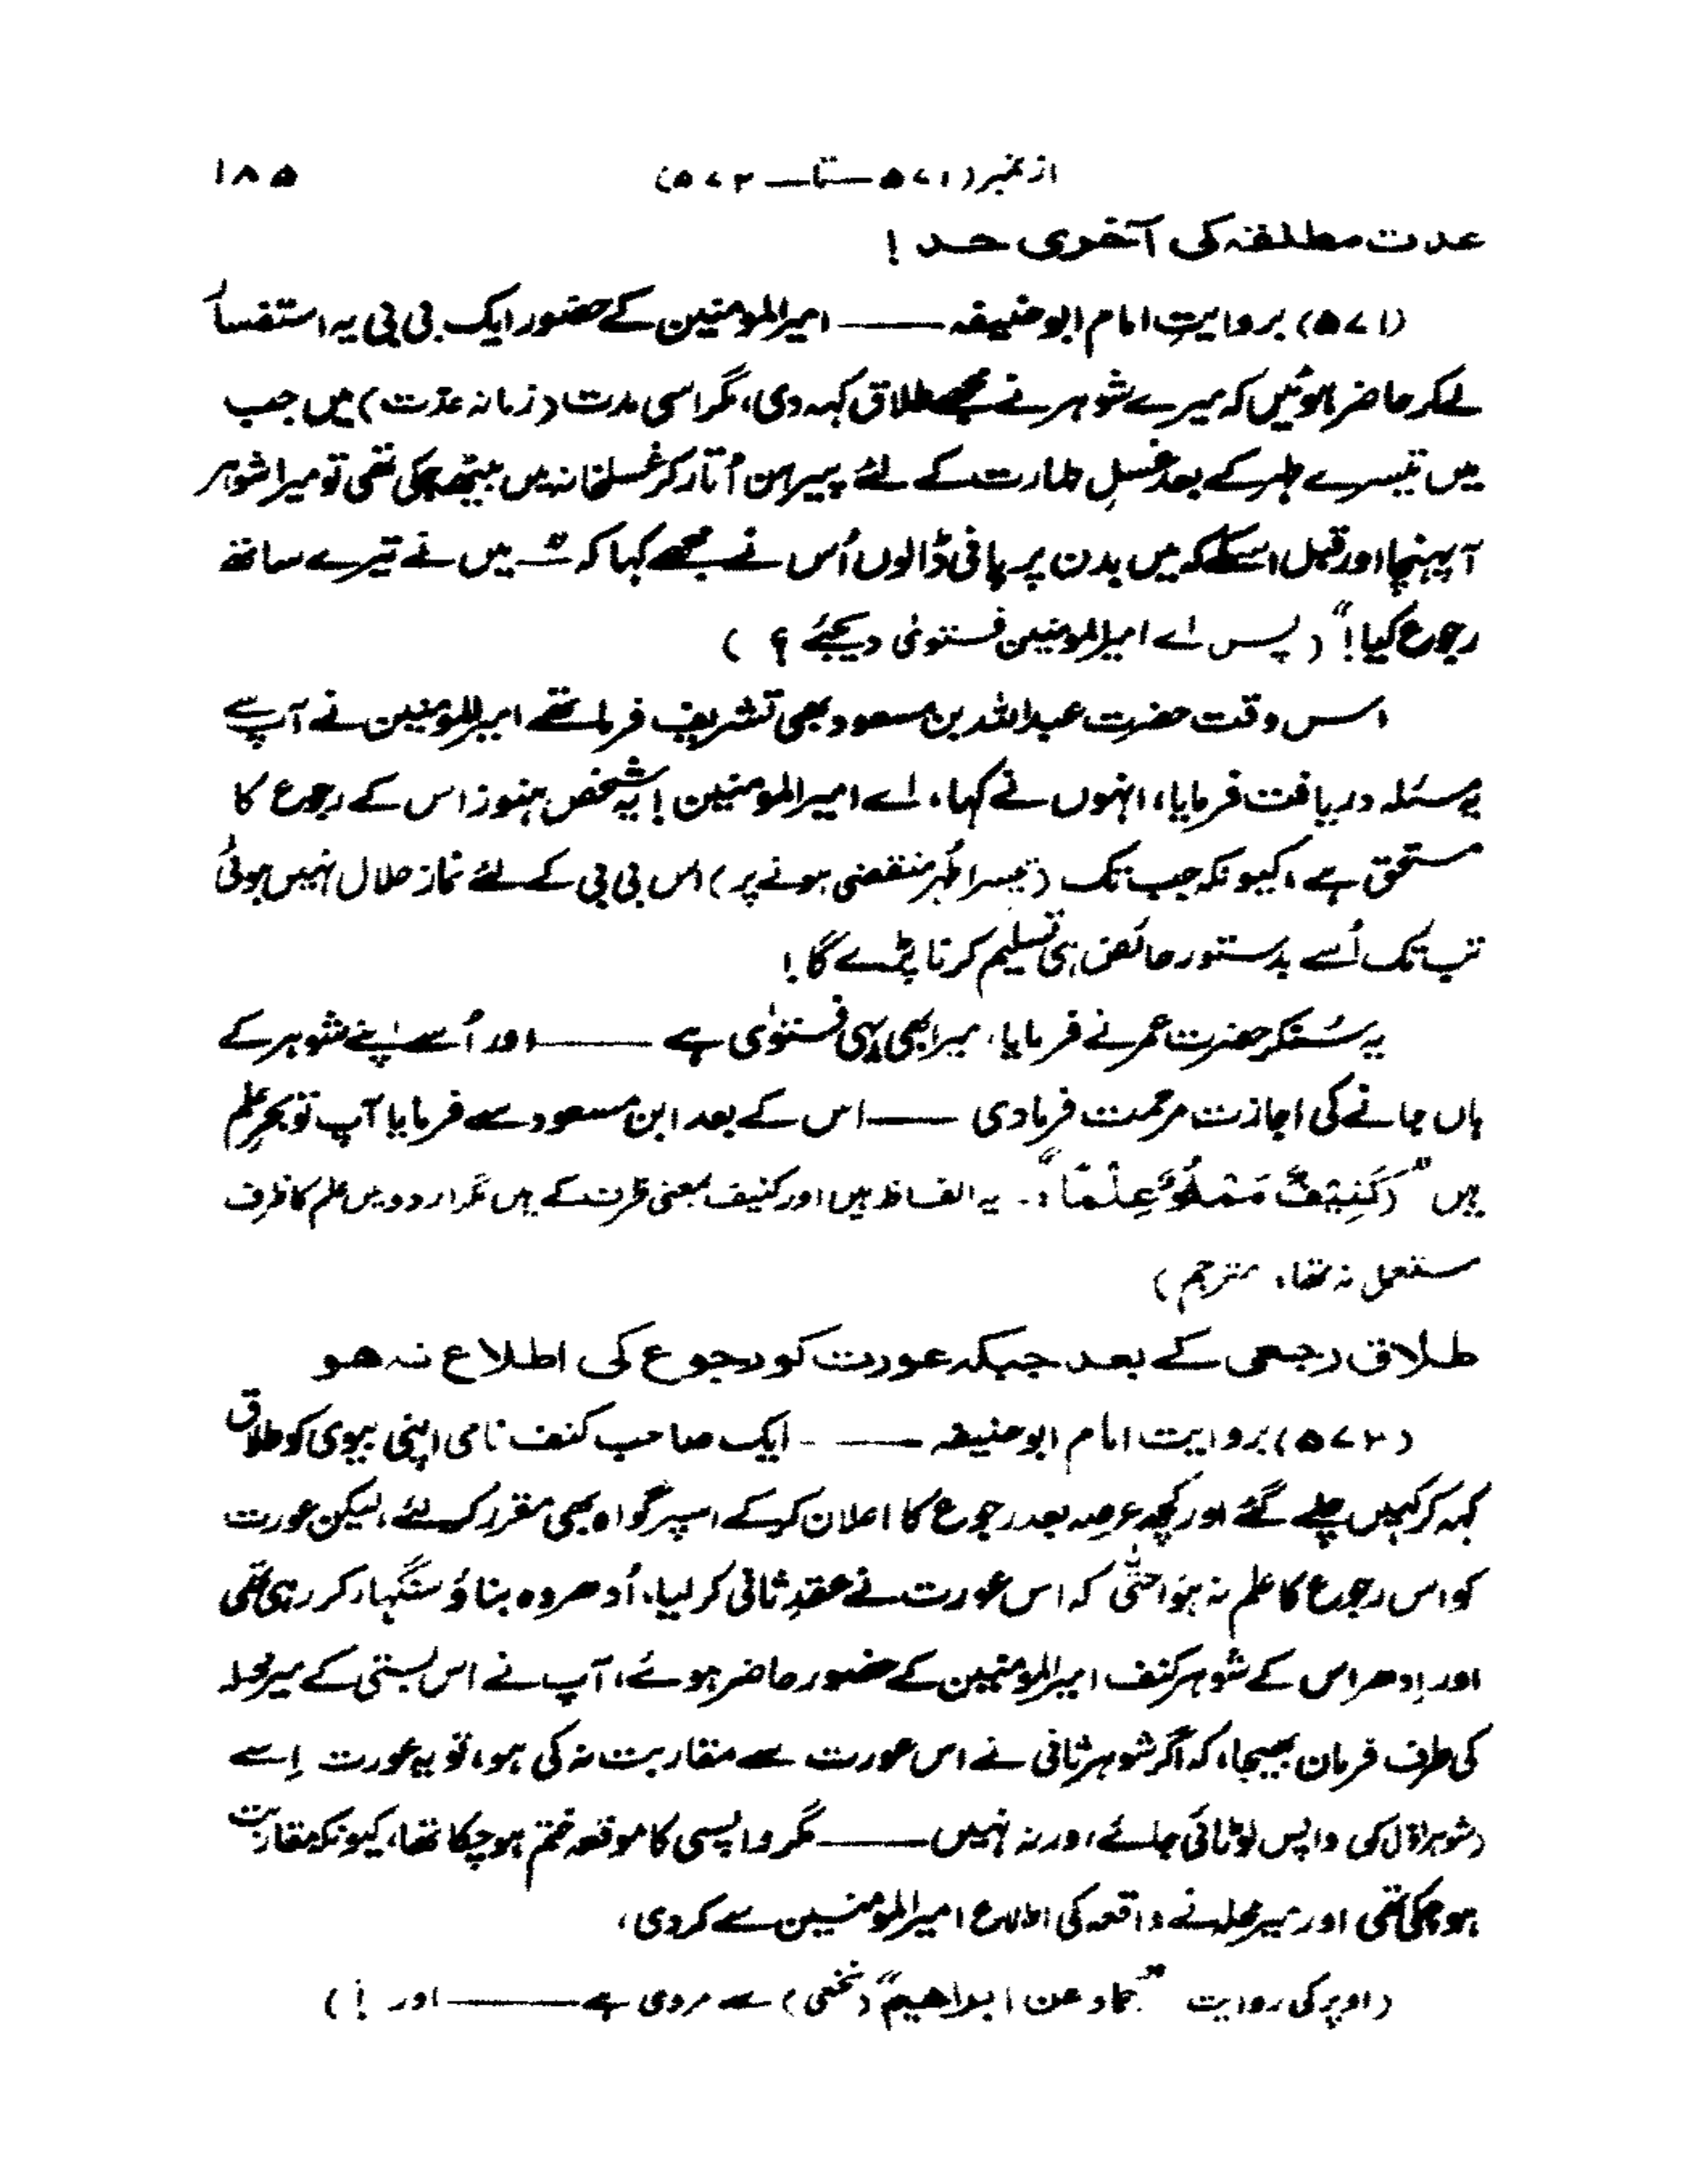 از نمبر (۵۷۱ ــ تا ــ ۵۷۲) ۱۸۵
عدت مطلقہ کی آخری حد !
(۵۷۱) بروایتِ امام ابو حنیفہ ــــ امیرالمومنین کے حضور ایک بی بی یہ استفسار
لے کر حاضر ہوئیں کہ میرے شوہر نے مجھے طلاق کہہ دی، مگر اسی مدت (زمانہ عدّت) میں جب
میں تیسرے طہر کے بعد غسلِ طہارت کے لئے پیراہن اُتار کر غسلخانہ میں بیٹھ چکی تھی تو میرا شوہر
آپہنچا اور قبل اسکے کہ میں بدن پر پانی ڈالوں اُس نے مجھے کہا کہ میں نے تیرے ساتھ
رجوع کیا!" (پس اے امیرالمومنین فتویٰ دیجئے ؟)
اس وقت حضرت عبداللہ بن مسعود بھی تشریف فرما تھے امیرالمومنین نے آپ سے
یہ مسئلہ دریافت فرمایا، انہوں نے کہا، اے امیرالمومنین ! یہ شخص ہنوز اس کے رجوع کا
مستحق ہے، کیونکہ جب تک (تیسرا طُہر منقضی ہونے پر) اس بی بی کے لئے نماز حلال نہیں ہوئی
تب تک اُسے بدستور حائض ہی تسلیم کرنا پڑے گا !
یہ سُنکر حضرت عمر نے فرمایا، میرا بھی یہی فتویٰ ہے ــــ اور اُسے اپنے شوہر کے
ہاں جانے کی اجازت مرحمت فرما دی ــــ اس کے بعد ابن مسعود سے فرمایا آپ تو بحرِ علم
ہیں "(کَنِیْفٌ مَمْلُوٌّ عِلْمًا"۔ یہ الفاظ ہیں اور کنیف بمعنی ظرف کے ہیں مگر اردو میں علم کا ظرف
مستعمل نہ تھا، مترجم)
طلاق رجعی کے بعد جبکہ عورت کو رجوع کی اطلاع نہ ہو
(۵۷۲) بروایت امام ابو حنیفہ ــــ ایک صاحب کنف نامی اپنی بیوی کو طلاق
کہہ کر کہیں چلے گئے اور کچھ عرصہ بعد رجوع کا اعلان کرکے اسپر گواہ بھی مقرر کر لئے، لیکن عورت
کو اس رجوع کا علم نہ ہوا حتّٰی کہ اس عورت نے عقدِ ثانی کر لیا، اُدھر وہ بناؤ سنگہار کر رہی تھی
اور اِدھر اس کے شوہر کنف امیرالمومنین کے حضور حاضر ہوئے، آپ نے اس بستی کے میر محلہ
کی طرف فرمان بھیجا، کہ اگر شوہر ثانی نے اس عورت سے مقاربت نہ کی ہو، تو یہ عورت اِسے
(شوہر اوّل کو) واپس لوٹائی جائے، ورنہ نہیں ــــ مگر واپسی کا موقعہ ختم ہوچکا تھا، کیونکہ مقاربت
ہو چکی تھی اور میر محلہ نے واقعہ کی اطلاع امیرالمومنین سے کر دی،
(اوپر کی روایت "حماد عن ابراھیم" (نخعی) سے مروی ہے ــــ اور ! )